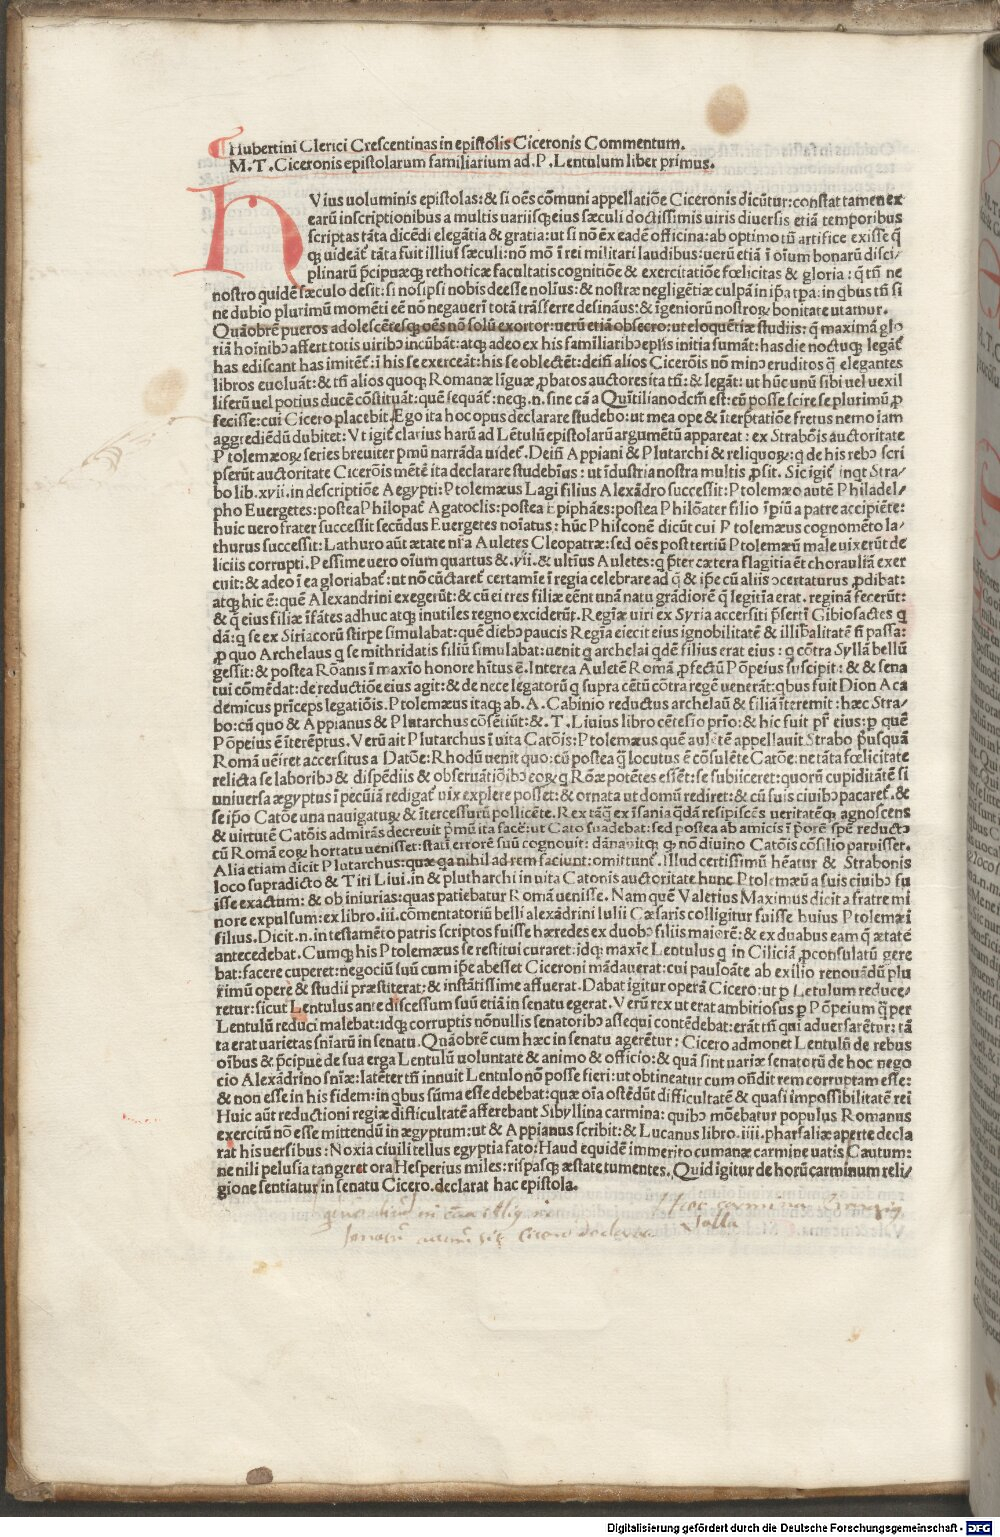 Hubertini Clerici Crescentinas in epistolis Ciceronis Commentum.
M.T.Ciceronis epistolarum familiarium ad.P.Lentulum liber primus.
hVius uoluminis epistolas:& si oẽs cõmuni appellatiõe Ciceronis dicũtur:constat tamen ex
earũ inscriptionibus a multis uariisq; eius sæculi doctissimis uiris diuersis etiã temporibus
scriptas tãta dicẽdi elegãtia & gratia:ut si nõ ẽx eadẽ officina:ab optimo tñ artifice exisse q̃
q; uideãt tãta fuit illius sæculi:nõ mõ ĩ rei militari laudibus:uerũ etiã ĩ oĩum bonarũ disci/
plinarũ p̃cipuæq; rethoricæ facultatis cognitiõe & exercitatiõe fœlicitas & gloria:q̃ tñ ne
nostro quidẽ sæculo desit:si nosipsi nobis deesse nolĩus:& nostræ negligẽtiæ culpã in ip̃a tp̃a:in qbus tñ si
ne dubio plurimũ momẽti eẽ nõ negauerĩ totã trãsferre desinãus:& ĩgeniorũ nostroꝝ bonitate utamur.
Quãobrẽ pueros adolescẽtesq; oẽs nõ solũ exortor:uerũ etiã obsecro:ut eloquẽtiæ studiis:q̃ maximã glo
riã hoĩnibɔ affert totis uiribɔ incũbãt:atq; adeo ex his familiaribɔ ep̃lis initia sumãt:has die noctuq; legãt
has ediscant has imitẽt:ĩ his se exerceãt:his se oblectẽt:deiñ alios Cicerõis nõ minɔ eruditos q̃ elegantes
libros euoluãt:& tñ alios quoq; Romanæ lĩguæ ꝓbatos auctores ita tñ:& legãt:ut hũc unũ sibi uel uexil
liferũ uel potius ducẽ cõstituãt:quẽ sequãt:neq;.n.sine cã a Quĩtiliano dcm̃ est:eũ posse scire se plurimũ ꝓ
fecisse:cui Cicero placebit.Ego ita hoc opus declarare studebo:ut mea ope & ĩterp̃tatiõe fretus nemo iam
aggrediẽdũ dubitet:Vt igit̃ clarius harũ ad Lẽtulũ epistolarũ argumẽtũ appareat:ex Strabõis auctoritate
Ptolemæoꝝ series breuiter p̃mũ narrãda uidet̃.Deiñ Appiani & Plutarchi & reliquoꝝ:q de his rebɔ scri
pserũt auctoritate Cicerõis mẽtẽ ita declarare studebĩus:ut ĩdustria nostra multis ꝓsit.Sic igit̃ inqt Stra/
bo lib.xvii.in descriptiõe Aegypti:Ptolemæus Lagi filius Alexãdro successit:Ptolemæo autẽ Philadel/
pho Euergetes:postea Philopat̃ Agatoclis:postea Epiphães:postea Philõater filio ĩpiũ a patre accipiẽte:
huic uero frater successit secũdus Euergetes noĩatus:hũc Phisconẽ dicũt cui Ptolemæus cognomẽto la/
thurus successit:Lathuro aũt ætate nr̃a Auletes Cleopatræ:sed oẽs post tertiũ Ptolemæũ male uixerũt de
liciis corrupti.Pessime uero oĩum quartus &.vii.& ultĩus Auletes:q p̃ter cætera flagitia ẽt choraulĩa exer
cuit:& adeo ĩ ea gloriabat̃:ut nõ cũctaret̃ certamĩe ĩ regia celebrare ad q̃ & ip̃e cũ aliis ɔcertaturus ꝓdibat:
atq; hic ẽ:quẽ Alexandrini exegerũt:& cũ ei tres filiæ eẽnt unã natu grãdiorẽ q̃ legitĩa erat.reginã fecerũt:
& q̃ eius filiæ ĩfãtes adhuc atq; inutiles regno exciderũt.Regiæ uiri ex Syria accersiti p̃serti Gibiosactes q
dã:q se ex Siriacorũ stirpe simulabat:quẽ diebɔ paucis Regĩa eiecit eius ignobilitatẽ & illiƀalitatẽ ñ passa:
ꝓ quo Archelaus q se mithridatis filiũ simulabat:uenit q archelai qdẽ filius erat eius:q cõtra Syllã bellũ
gessit:& postea Rõanis ĩ maxĩo honore hĩtus ẽ.Interea Auletẽ Romã ꝓfectũ Põpeius suscipit:& & sena
tui cõmẽdat:de reductiõe eius agit:& de nece legatorũ q supra cẽtũ cõtra regẽ uenerãt:qbus fuit Dion Aca
demicus prĩceps legatiõis.Ptolemæus itaq; ab.A.Cabinio reductus archelaũ & filiã ĩteremit:hæc Stra/
bo:cũ quo & Appianus & Plutarchus cõsẽtiũt:&.T.Liuius libro cẽtesĩo prĩo:& hic fuit pr̃ eius:p quẽ
Põpeius ẽ ĩterẽptus.Verũ ait Plutarchus ĩ uita Catõis:Ptolemæus quẽ auletẽ appellauit Strabo p̃usquã
Romã ueĩret accersitus a Datõe:Rhodũ uenit quo:cũ postea q̃ locutus ẽ cõsulẽte Catõe:ne tãta fœlicitate
relicta se laboribɔ & dispẽdiis & obseruatiõibɔ eoꝝ q Rõæ potẽtes essẽt:se subiiceret:quorũ cupiditatẽ si
uniuersa ægyptus ĩ pecũiã redigat̃ uix explere posset:& ornata ut domũ rediret:& cũ suis ciuibɔ pacaret̃.&
se ip̃o Catõe una nauigaturꝝ & ĩtercessurũ pollicẽte.Rex tãq̃ ex ĩsania q̃dã resipiscẽs ueritatẽq; agnoscens
& uirtutẽ Catõis admirãs decreuit p̃mũ ita facẽ:ut Cato suadebat:sed postea ab amicis ĩ ꝓrẽ spẽ reductɔ
cũ Romã eoꝝ hortatu uenisset:stati errorẽ suũ cognouit:dãnauitq; q nõ diuino Catõis cõsilio paruisset.
Alia etiam dicit Plutarchus:quæ qa nihil ad rem faciunt:omittunt̃.Illud certissimũ hẽatur & Strabonis
loco supradicto & Titi Liui.in & plutharchi in uita Catonis auctoritate hunc Ptolemæũ a suis ciuibɔ fu
isse exactum:& ob iniurias:quas patiebatur Romã uenisse.Nam quẽ Valerius Maximus dicit a fratre mi
nore expulsum:ex libro.iii.cõmentatoriũ belli alexãdrini Iulii Cæsaris colligitur fuisse huius Ptolemæi
filius.Dicit.n.in testamẽto patris scriptos fuisse hæredes ex duobɔ filiis maiorẽ:& ex duabus eam q̃ ætatẽ
antecedebat.Cumq; his Ptolemæus se restitui curaret:idq; maxĩe Lentulus q in Ciliciã ꝓconsulatũ gere
bat:facere cuperet:negociũ suũ cum ip̃e abesset Ciceroni mãdauerat:cui pauloãte ab exilio renouãdũ plu
rimũ opere & studii præstiterat:& instãtissime affuerat.Dabat igitur operã Cicero:ut p Lẽtulum reduce/
retur:sicut Lentulus ante discessum suũ etiã in senatu egerat.Verũ rex ut erat ambitiosus p Põpeium q̃ per
Lentulũ reduci malebat:idq; corruptis nõnullis senatoribɔ assequi contẽdebat:erãt tñ qui aduersarẽtur:tã
ta erat uarietas sñiarũ in senatu.Quãobrẽ cum hæc in senatu agerẽtur:Cicero admonet Lentulũ de rebus
oĩbus & p̃cipue de sua erga Lentulũ uoluntate & animo & officio:& quã sint uariæ senatorũ de hoc nego
cio Alexãdrino sñiæ:latẽter tñ innuit Lentulo nõ posse fieri:ut obtineatur cum oñdit rem corruptam esse:
& non esse in his fidem:in qbus sũma esse debebat:quæ oĩa ostẽdũt difficultatẽ & quasi impossibilitatẽ rei
Huic aũt reductioni regiæ difficultatẽ afferebant Sibyllina carmina:quibɔ mõebatur populus Romanus
exercitũ nõ esse mittendũ in ægyptum:ut & Appianus scribit:& Lucanus libro.iiii.pharsaliæ aperte decla
rat his uersibus:Noxia ciuili tellus egyptia fato:Haud equidẽ immerito cumanæ carmine uatis Cautum:
ne nili pelusia tangeret ora Hesperius miles:rispasq; æstate tumentes.Quid igitur de horũ carminum reli/
gione sentiatur in senatu Cicero.declarat hac epistola.
Digitalisierung gefördert durch die Deutsche Forschungsgemeinschaft - DFG